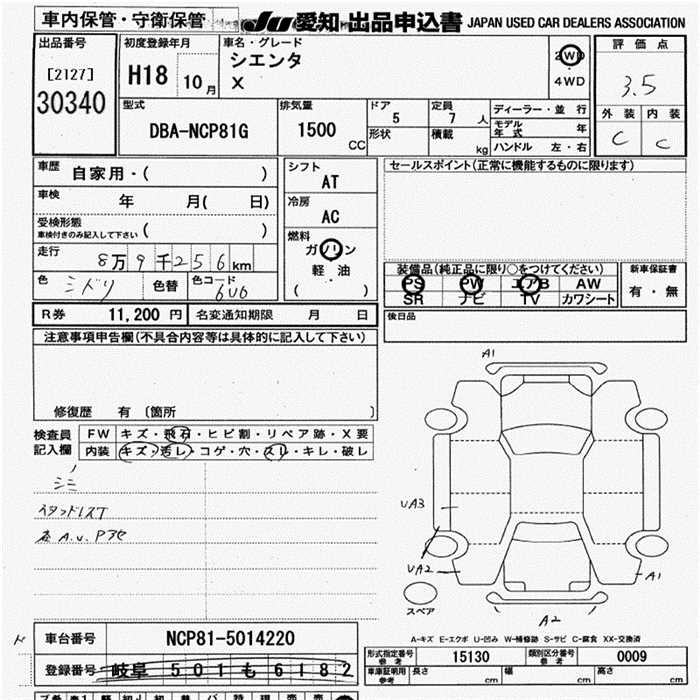 車内保管・守衛保管
JU 愛知 出品申込書 JAPAN USED CAR DEALERS ASSOCIATION
出品番号
[2127]
30340
初度登録年月
H18 10月
車名・グレード
シエンタ
X
2WD
4WD
評価点
3.5
外装 内装
C C
型式
DBA-NCP81G
排気量
1500 CC
ドア
5
形状
定員
7 人
積載
kg
ディーラー・並行
モデル年式 年
ハンドル 左・右
車歴 自家用・( )
車検 年 月( 日)
受検形態
車検付きのみ記入して下さい ( )
走行 8万9千256km
色 ミドリ 色替 色コード 6U6
シフト
AT
冷房
AC
燃料
ガソリン
軽油
( )
セールスポイント(正常に機能するものに限ります)
装備品(純正品に限り○をつけてください)
PS PW エアB AW
SR ナビ TV カワシート
新車保証書
有・無
R券 11,200円 名変通知期限 月 日
後日品
注意事項申告欄(不具合内容等は具体的に記入して下さい)
修復歴 有 [箇所 ]
検査員記入欄
FW キズ・飛石・ヒビ割・リペア跡・X要
内装 キズ・汚レ・コゲ・穴・スレ・キレ・破レ
A1
UA3
UA2
A1
A2
スペア
A-キズ E-エクボ U-凹み W-補修跡 S-サビ C-腐食 XX-交換済
車台番号 NCP81-5014220
登録番号 岐阜 501 も 6182
形式指定番号 参考 15130 類別区分番号 参考 0009
車庫証明用 参考 長さ cm 幅 cm 高さ cm